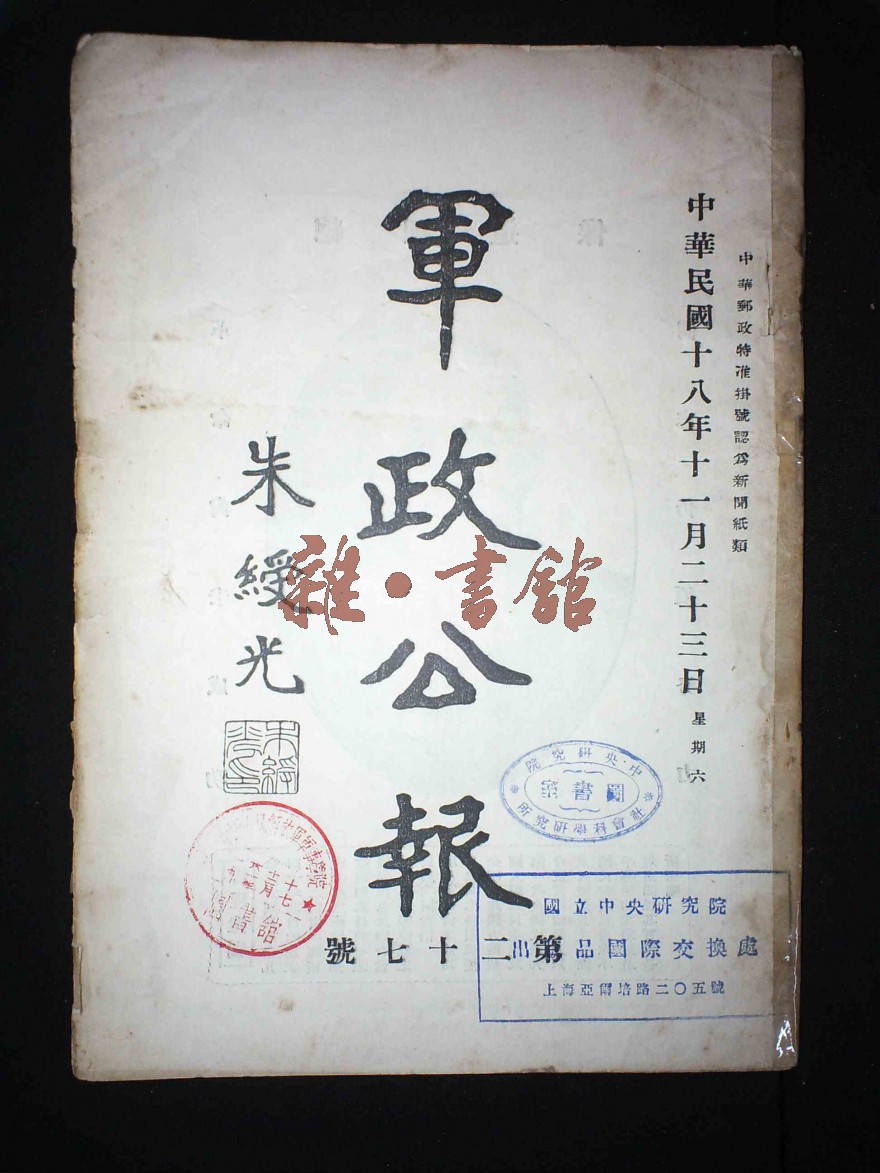 中華郵政特准掛號認爲新聞紙類
中華民國十八年十一月二十三日 星期六
軍政公報
朱綬光
朱綬光印
雜·書館
第二十七號
中央研究院
圖書室
社會科學研究所
國立中央研究院
出品國際交換處
上海亞爾培路二〇五號
軍事學院
圖書館